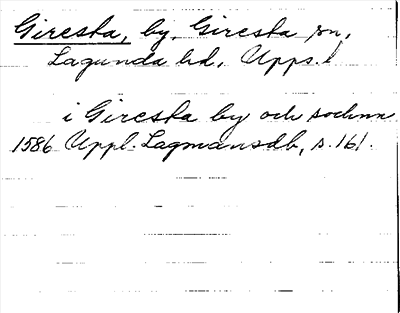 Giresta, by, Giresta sn,
Lagunda hd, Upps. l
i Giresta by och sochnn
1586 Uppl. Lagmansdb, s. 161.